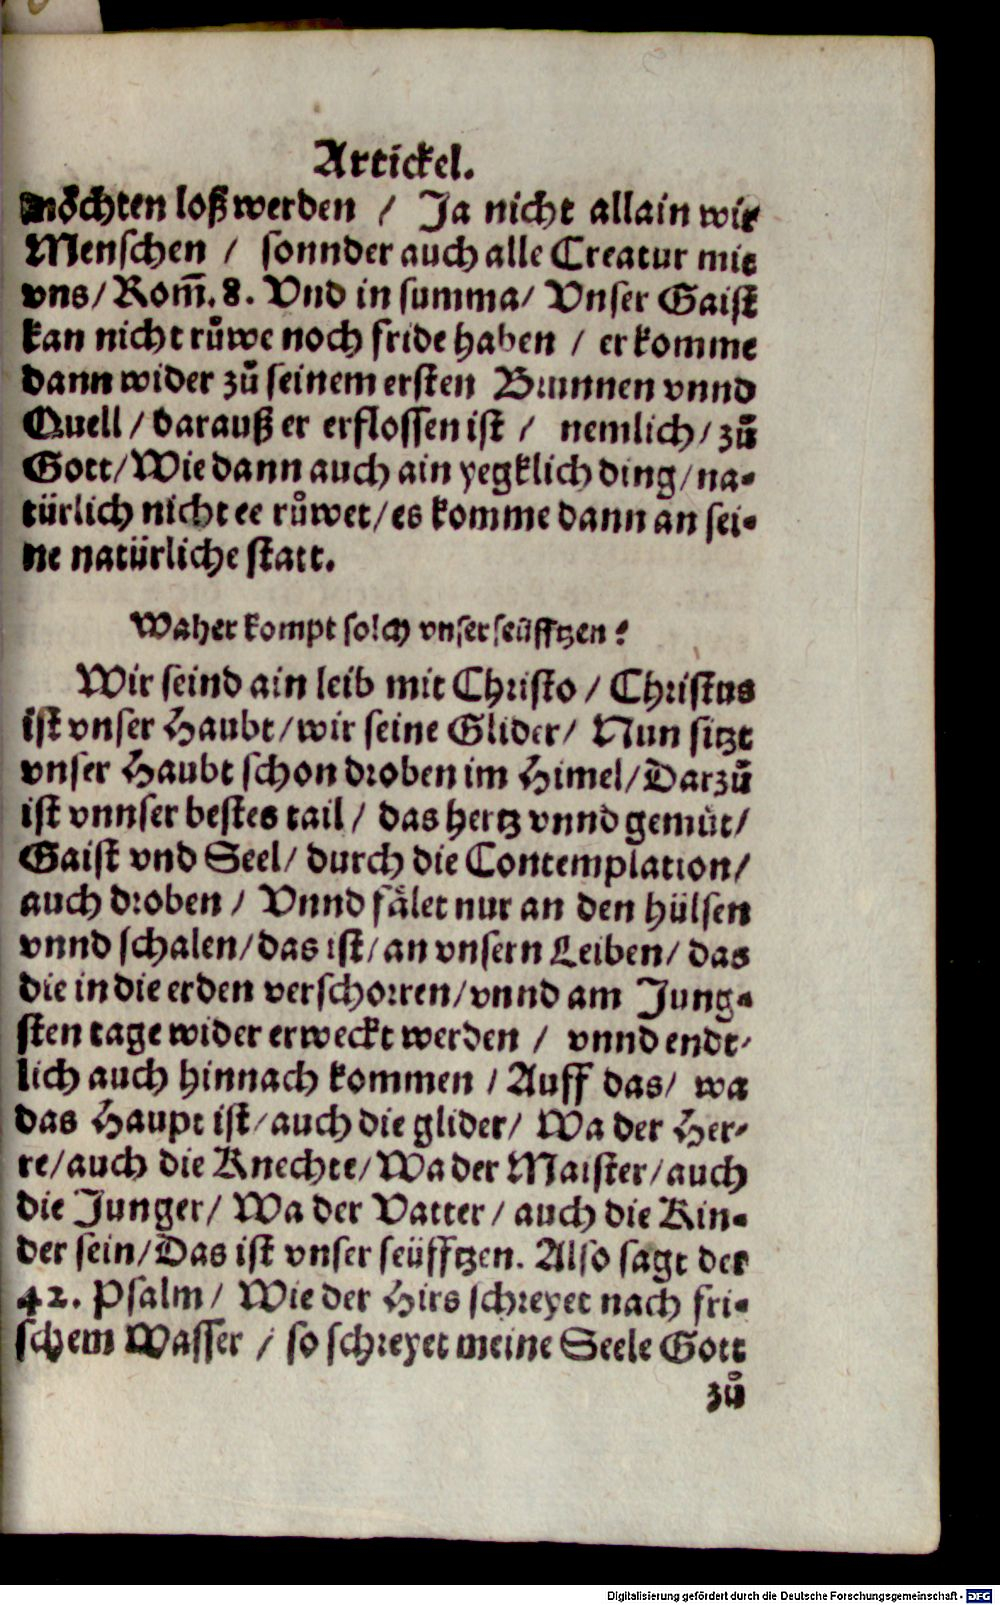 Artickel.
möchten loß werden / Ja nicht allain wir
Menschen / sonnder auch alle Creatur mit
vns / Rom̃. 8. Vnd in summa / Vnser Gaist
kan nicht růwe noch fride haben / er komme
dann wider zů seinem ersten Brunnen vnnd
Quell / darauß er erflossen ist / nemlich / zů
Gott / Wie dann auch ain yegklich ding / na-
türlich nicht ee růwet / es komme dann an sei-
ne natürliche statt.
Waher kompt solch vnser seüfftzen?
Wir seind ain leib mit Christo / Christus
ist vnser Haubt / wir seine Glider / Nun sitzt
vnser Haubt schon droben im Himel / Darzů
ist vnnser bestes tail / das hertz vnnd gemüt /
Gaist vnd Seel / durch die Contemplation /
auch droben / Vnnd fälet nur an den hülsen
vnnd schalen / das ist / an vnsern Leiben / das
die in die erden verschorren / vnnd am Jung-
sten tage wider erweckt werden / vnnd endt-
lich auch hinnach kommen / Auff das / wa
das Haupt ist / auch die glider / Wa der Her-
re / auch die Knechte / Wa der Maister / auch
die Junger / Wa der Vatter / auch die Kin-
der sein / Das ist vnser seüfftzen. Also sagt der
42. Psalm / Wie der Hirs schreyet nach fri-
schem Wasser / so schreyet meine Seele Gott
zů
Digitalisierung gefördert durch die Deutsche Forschungsgemeinschaft - DFG